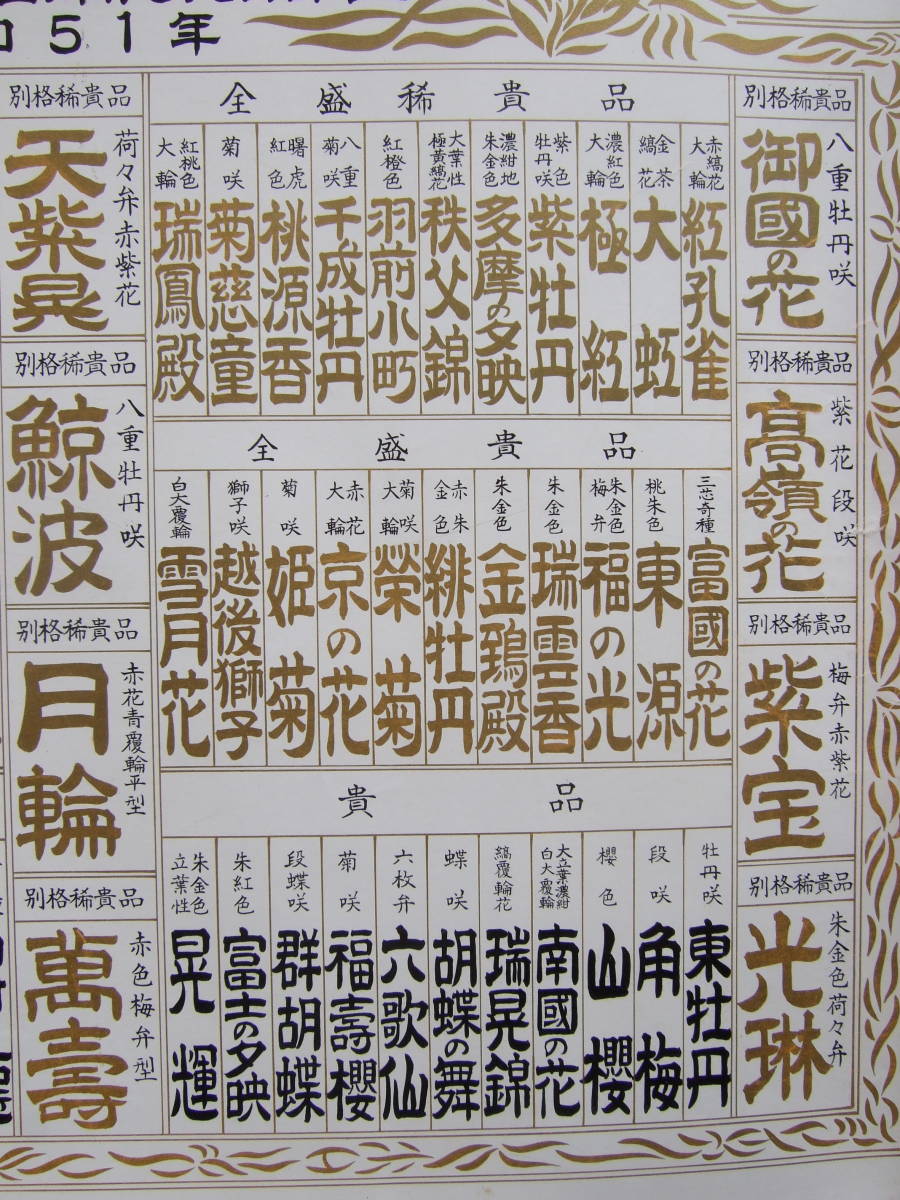 51年
別格稀貴品
八重牡丹咲
御國の花
別格稀貴品
紫花段咲
高嶺の花
別格稀貴品
梅弁赤紫花
紫宝
別格稀貴品
朱金色荷々弁
光琳
全盛稀貴品
赤縞花大輪
紅孔雀
金茶縞花
大虹
濃紅色大輪
極紅
紫色牡丹咲
紫牡丹
濃紺地朱金色
多摩の夕映
大葉性極黄縞花
秩父錦
紅橙色
羽前小町
八重菊咲
千成牡丹
曙虎紅色
桃源香
菊咲
菊慈童
紅桃色大輪
瑞鳳殿
全盛貴品
三芯奇種
富國の花
桃朱色
東源
朱金色梅弁
福の光
朱金色
瑞雲香
朱金色
金鵄殿
赤朱金色
緋牡丹
菊咲大輪
榮菊
赤花大輪
京の花
菊咲
姫菊
獅子咲
越後獅子
白大覆輪
雪月花
貴品
牡丹咲
東牡丹
段咲
角梅
櫻色
山櫻
大立葉濃紺白大覆輪
南國の花
縞覆輪花
瑞晃錦
蝶咲
胡蝶の舞
六枚弁
六歌仙
菊咲
福壽櫻
段蝶咲
群胡蝶
朱紅色
富士の夕映
朱金色立葉性
晃輝
別格稀貴品
荷々弁赤紫花
天紫晃
別格稀貴品
八重牡丹咲
鯨波
別格稀貴品
赤花青覆輪平型
月輪
別格稀貴品
赤色梅弁型
萬壽